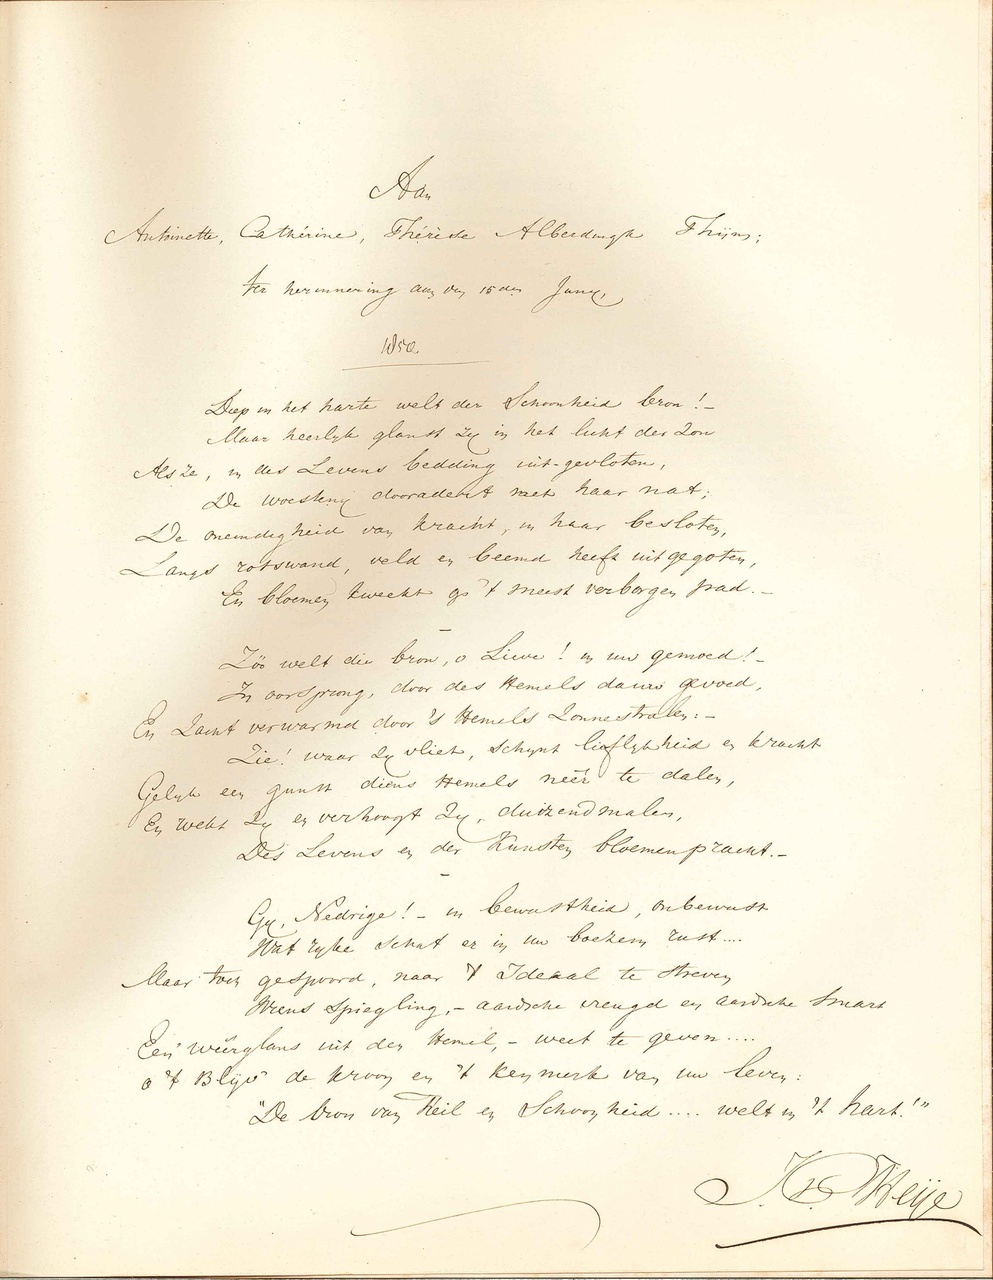 Aan
Antoinette, Cathérine, Thérèse Alberdingk Thijm;
ter herinnering aan den 15den Juny,
1850.
Diep in het harte welt der Schoonheid bron! –
Maar heerlyk glanst zy in het licht der zon
Als ze, in des Levens bedding uit-gevloten,
De woesteny dooradert met haar nat;
De oneindigheid van kracht, in haar besloten,
Langs rotswand, veld en beemd heeft uitgegoten,
En bloemen kweekt op 't meest verborgen pad. –
–
Zóó welt die bron, o Lieve! in uw gemoed! –
In oorsprong, door des Hemels dauw gevoed,
En zacht verwarmd door 's Hemels Zonnestralen: –
Zie! waar zy vliet, schynt lieflykheid en kracht
Gelyk een gunst diens Hemels neêr te dalen,
En wekt zy en verhoogt zy, duizendmalen,
Des Levens en der Kunsten bloemenpracht. –
–
Gy, Nedrige! – in bewustheid, onbewust
Wat ryke schat er in uw boezem rust....
Maar toch gespoord, naar 't Ideaal te streven
Wiens spiegling, – aardsche vreugd en aardsche smart
Eén weêrglans uit den Hemel, – weet te geven....
o 't Blyv' de kroon en 't kenmerk van uw leven:
"De bron van Heil en Schoonheid .... welt in 't hart!"
Heije